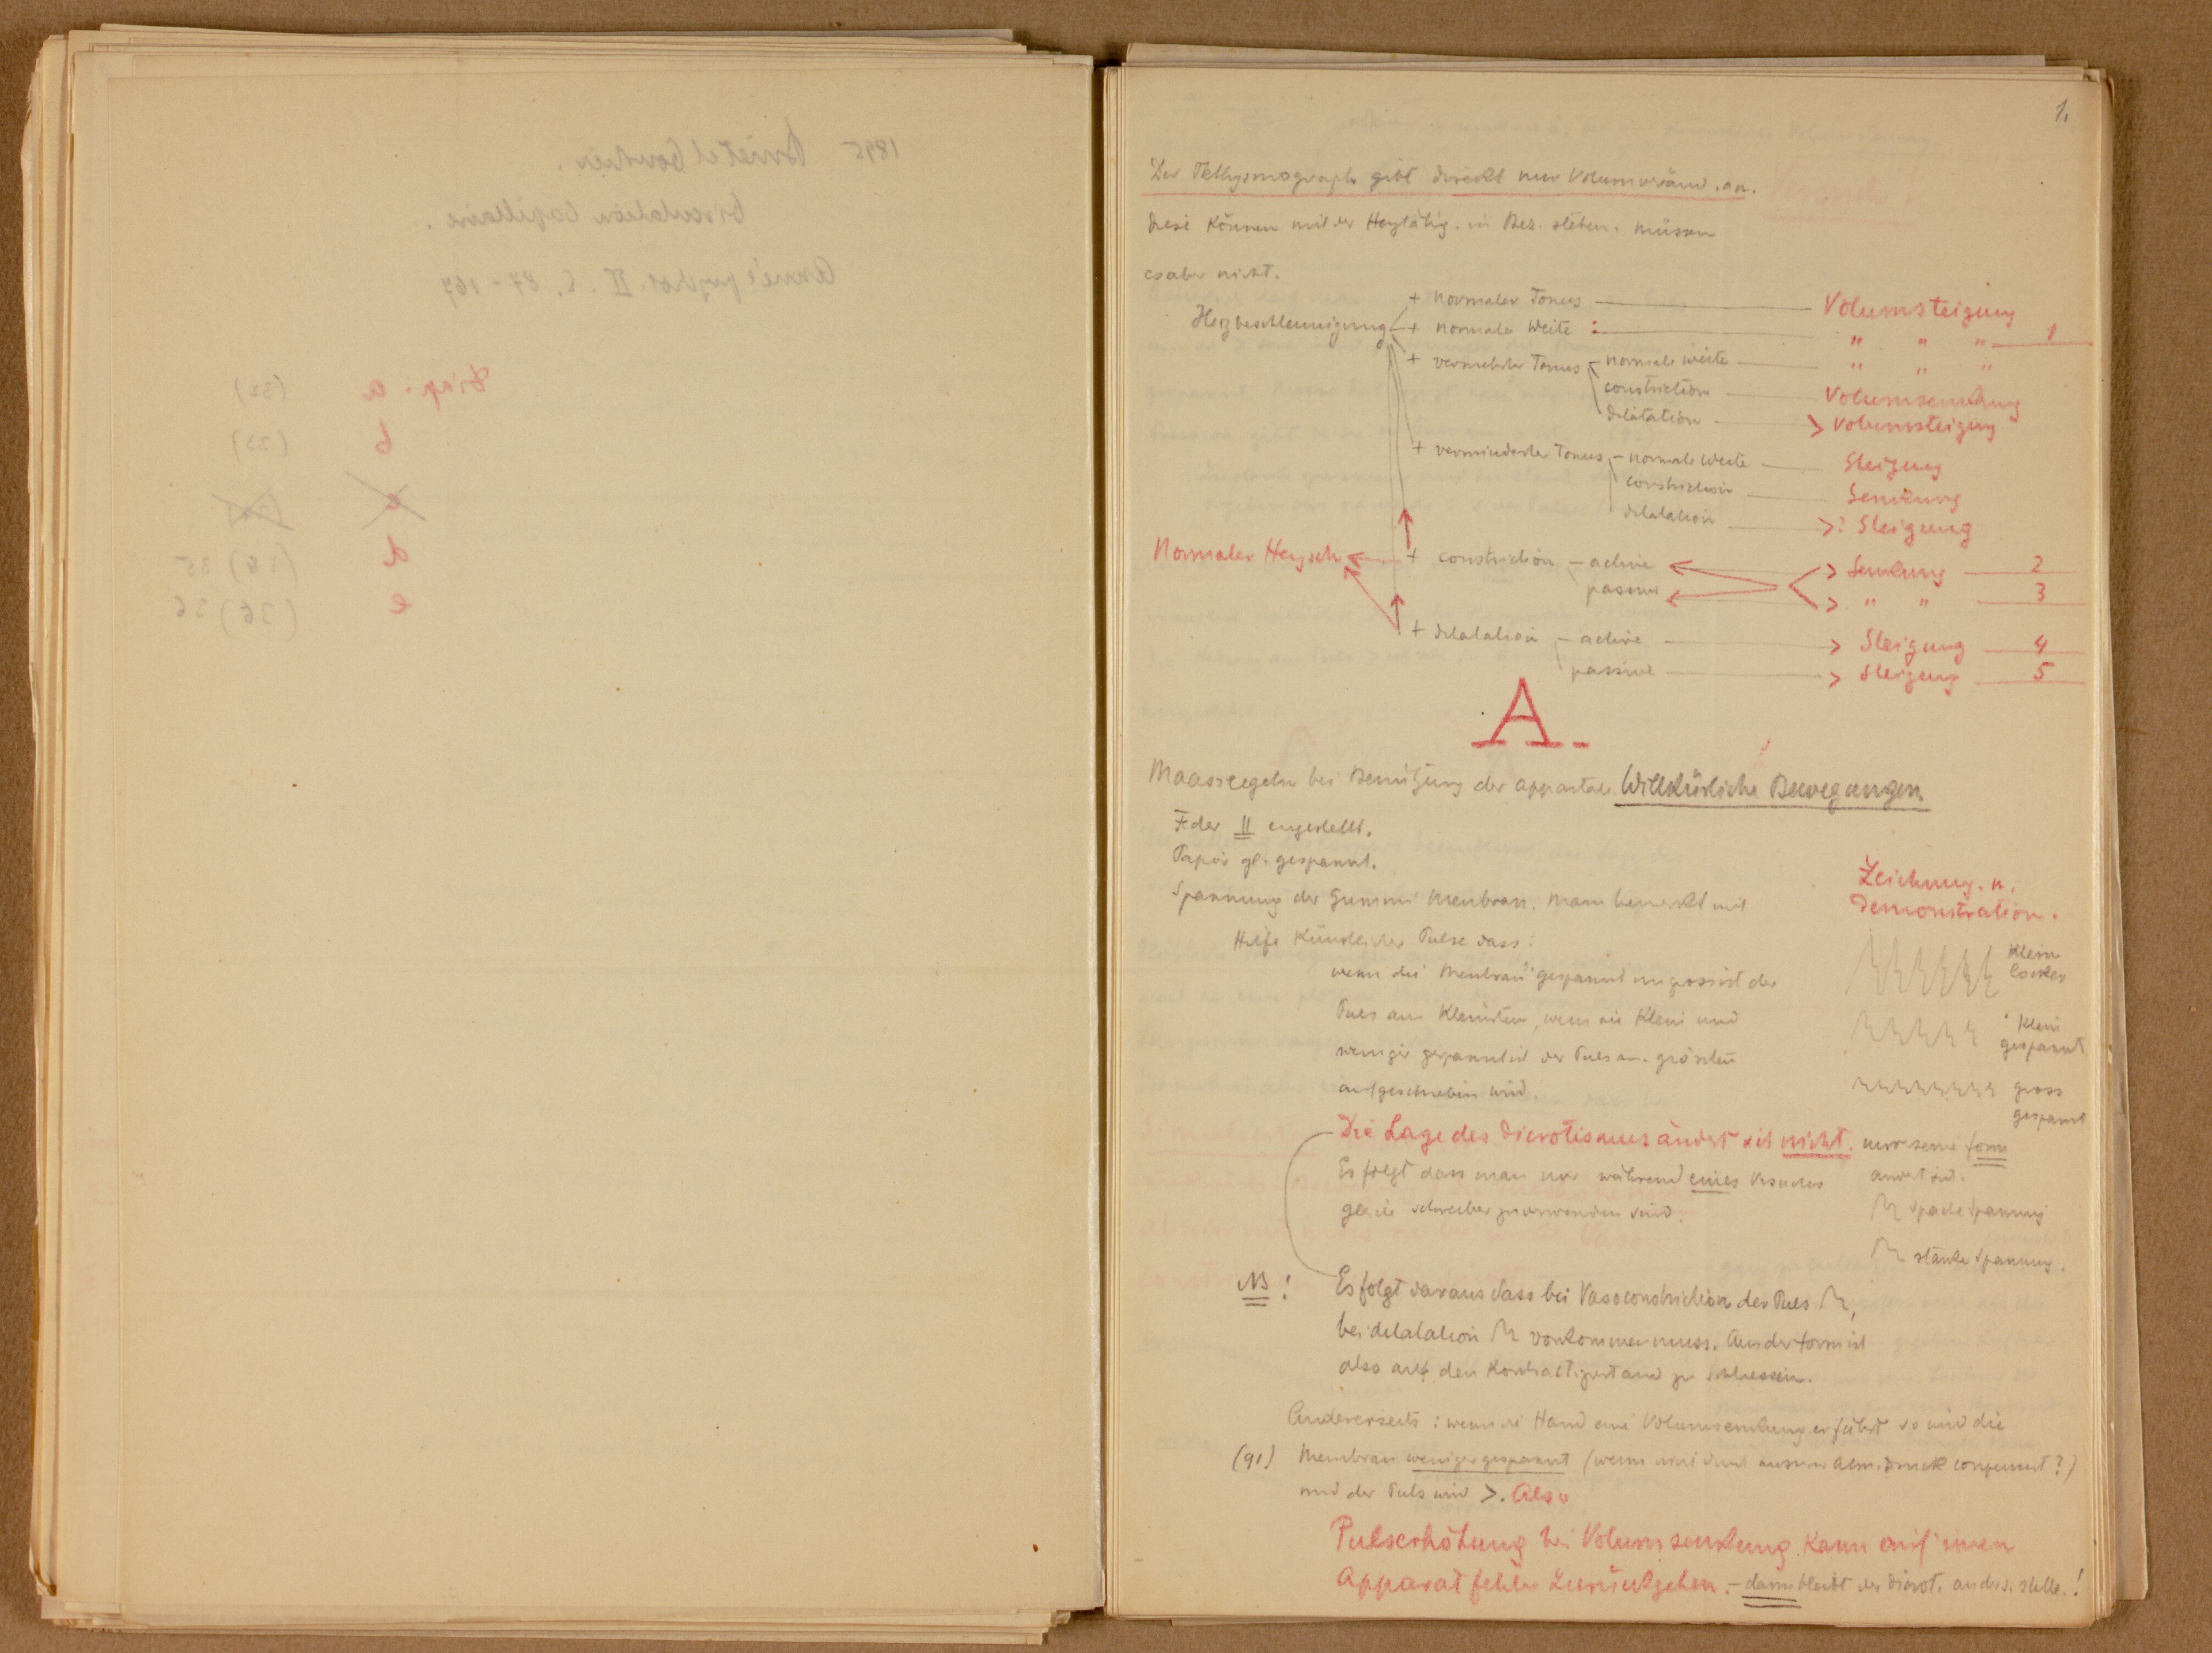 1895 Binet et Courtier.
Circulation Capillaire.
Année psychol. II. S. 87-167
Diap. a (32)
b (33)
c
d 35
e (36) 36
1.
Der Plethysmograph gibt direkt nur Volumveränd. an.
Diese können mit der Herztätig. in Bez. stehen. müssen
es aber nicht.
Herzbeschleunigung + normaler Tonus Volumsteigung
+ normale Weite : " " " 1
+ vermehrter Tonus - normale weite " " "
constriction Volumsenkung
dilatation > Volumsteigung
+ verminderter Tonus - normale Weite Steigung
constriction Senkung
dilatation >? Steigung
Normaler Herzsch + constriction - active > Senkung 2
passive > " " 3
+ dilatation - active > Steigung 4
passive > Steigung 5
A.
Maassregeln bei Benützung der Apparate. Willkürliche Bewegungen
Feder II eingestellt.
Papier gl. gespannt.
Spannung der Gummi Membran. Man bemerkt mit
Hilfe Künstlicher Pulse dass:
wenn die Membran gespannt un gross ist der
Puls am Kleinsten, wenn sie Klein und
weniger gespannt ist der Puls am grössten
aufgeschrieben wird.
Zeichnung. u.
Demonstration.
Klein
locker
Klein
gespannt
gross
gespannt
Die Lage des Dicrotismus ändert sich nicht. nur seine form
ändert sich.
Es folgt dass man nur während eines Versuches
gleiche schreiber zu verwenden sind.
Spannung
starke Spannung.
NB! Es folgt daraus dass bei Vasoconstriction der Puls ,
bei dilatation vorkommen muss. Aus der form ist
also auf den Kontractzustand zu schliessen.
Andererseits: wenn die Hand eine Volumsenkung erfährt so wird die
(91) Membran weniger gespannt (wenn nicht durch äusseren Atm. druck compensirt?)
und der Puls wird >. Also
Pulserhöhung bei Volumsenkung kann auf einen
Apparatfehler zurückgehen. - dann bleibt der Dicrot. an ders. stelle.!